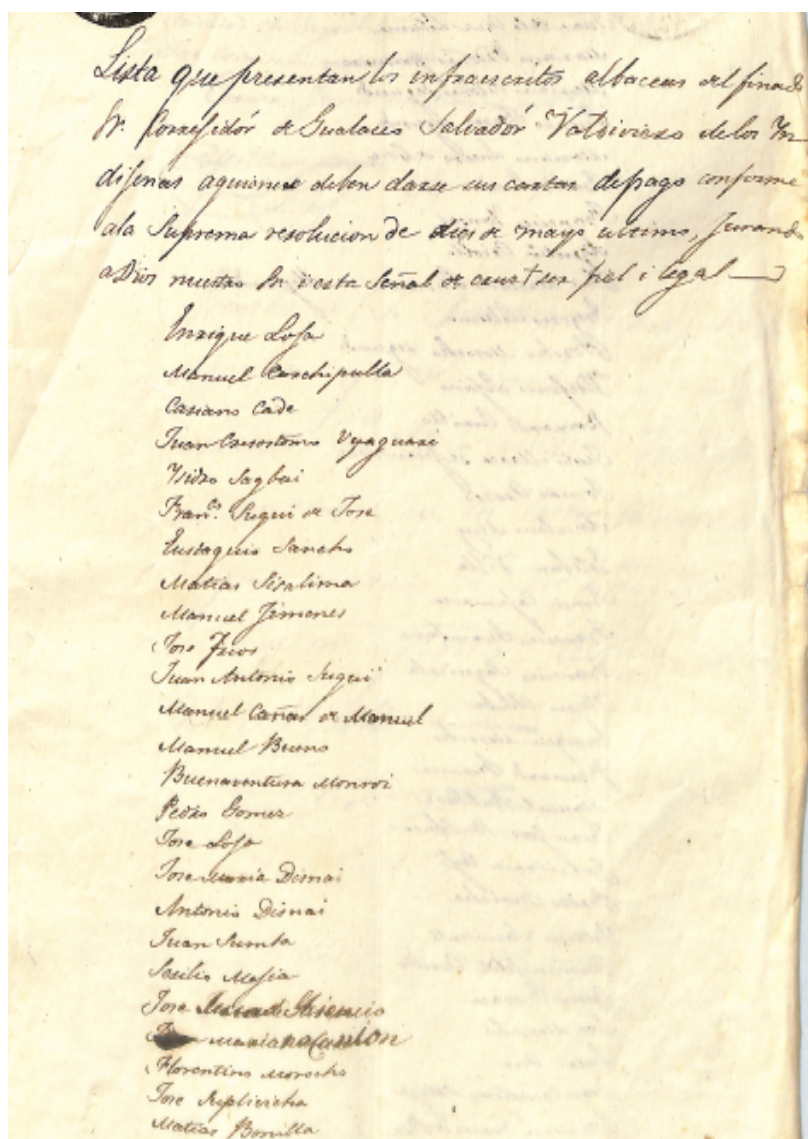 Lista que presentan los infraescritos albaceas del finado
Sr. Corregidór de Gualaceo Salvadór Valdiviezo de los Yn
dijenas aquienes deben darse sus cartas depago conforme
ala Suprema resolucion de dies de mayo ultimo, jurando
aDios nuestro Sr i esta Señal de cruz † ser fiel i legal
Enrique Loja
Manuel
Casiano Cade
Juan Crisostomo Uyaguari
Ysidro Sagbai
Fran.co Sugui de Jose
Eustaquio Sancho
Matias Sisalima
Manuel Jimenes
Jose
Juan Antonio Sugui
Manuel Cañar de Manuel
Manuel Bueno
Buenaventura Monroi
Pedro Gomez
Jose Loja
Jose Maria Dismai
Antonio Dismai
Juan Sumba
Mejia
Jose
Mariano
Florentino Morocho
Jose
Matias Bonilla